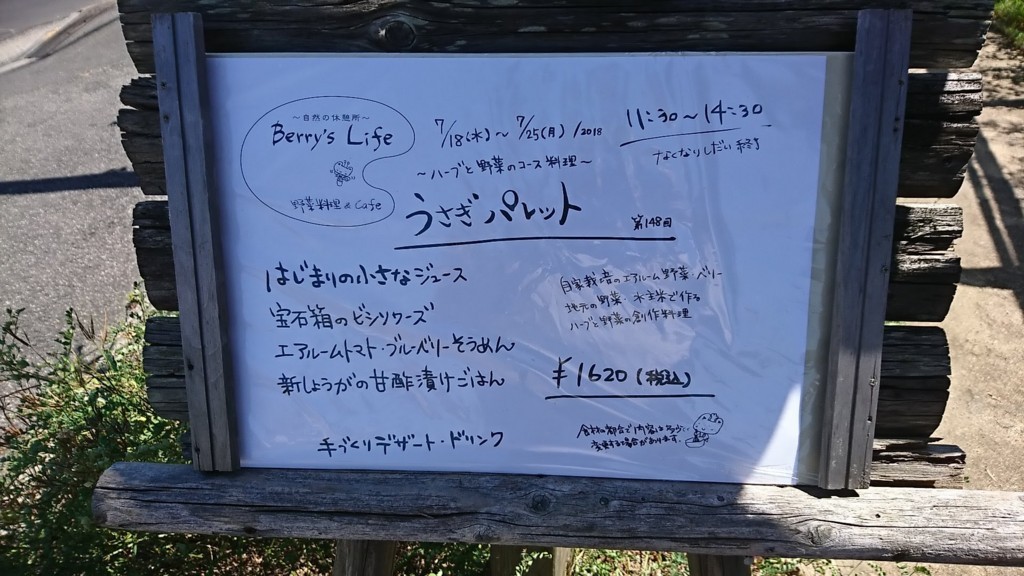 ～自然の休憩所～
Berry's Life
野菜料理 & Cafe
7/18(水)～7/25(月)/2018
11:30～14:30
なくなりしだい終了
～ハーブと野菜のコース料理～
うさぎパレット
第148回
はじまりの小さなジュース
宝石箱のビシソワーズ
エアルームトマト・ブルーベリーそうめん
新しょうがの甘酢漬けごはん
手づくりデザート・ドリンク
自家栽培のエアルーム野菜・ベリー
地元の野菜、水主米で作る
ハーブと野菜の創作料理
¥1620(税込)
食材の都合で内容は多少
変更する場合があります。